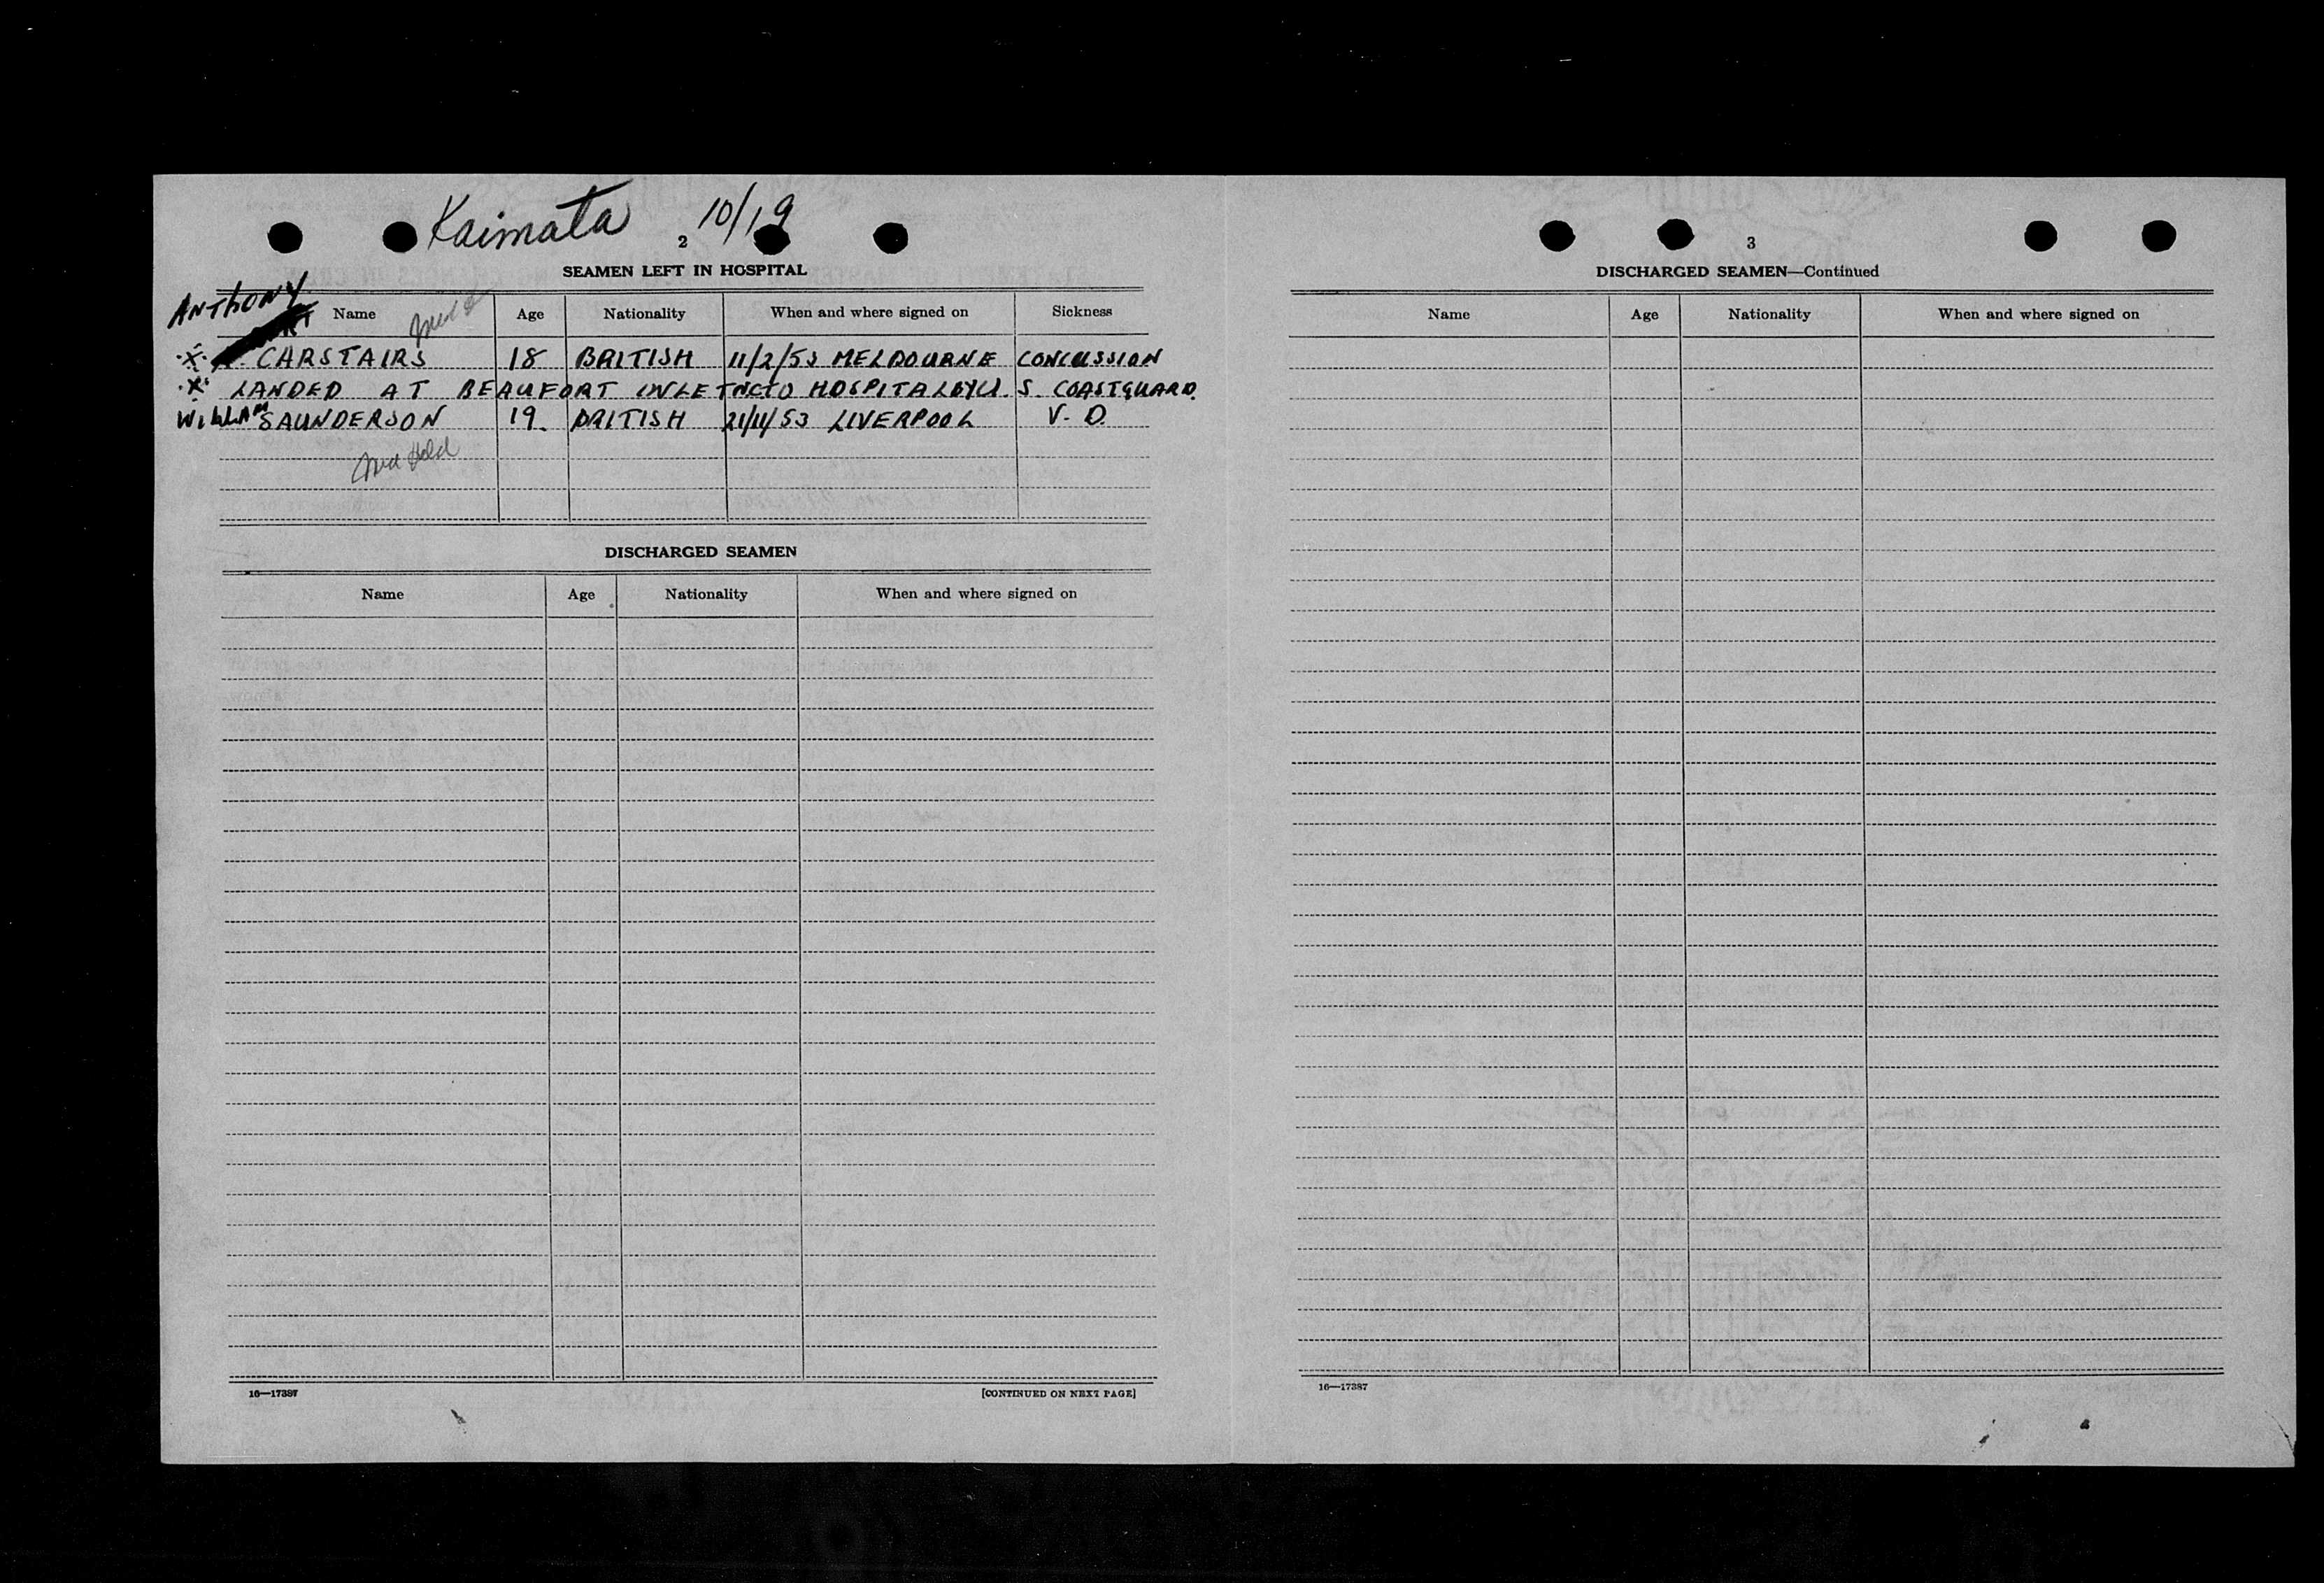 Kaimata 10/19
2
SEAMEN LEFT IN HOSPITAL
ANTHONY
Name Age Nationality When and where signed on Sickness
CARSTAIRS 18 BRITISH 11/2/53 MELBOURNE CONCUSSION
LANDED AT BEAUFORT INLET TO HOSPITAL BY U. S. COASTGUARD.
WILLIAM SAUNDERSON 19. BRITISH 21/11/53 LIVERPOOL V. D.
Med Hold
DISCHARGED SEAMEN
Name Age Nationality When and where signed on
16—17387 [CONTINUED ON NEXT PAGE]
3
DISCHARGED SEAMEN—Continued
Name Age Nationality When and where signed on
16—17387